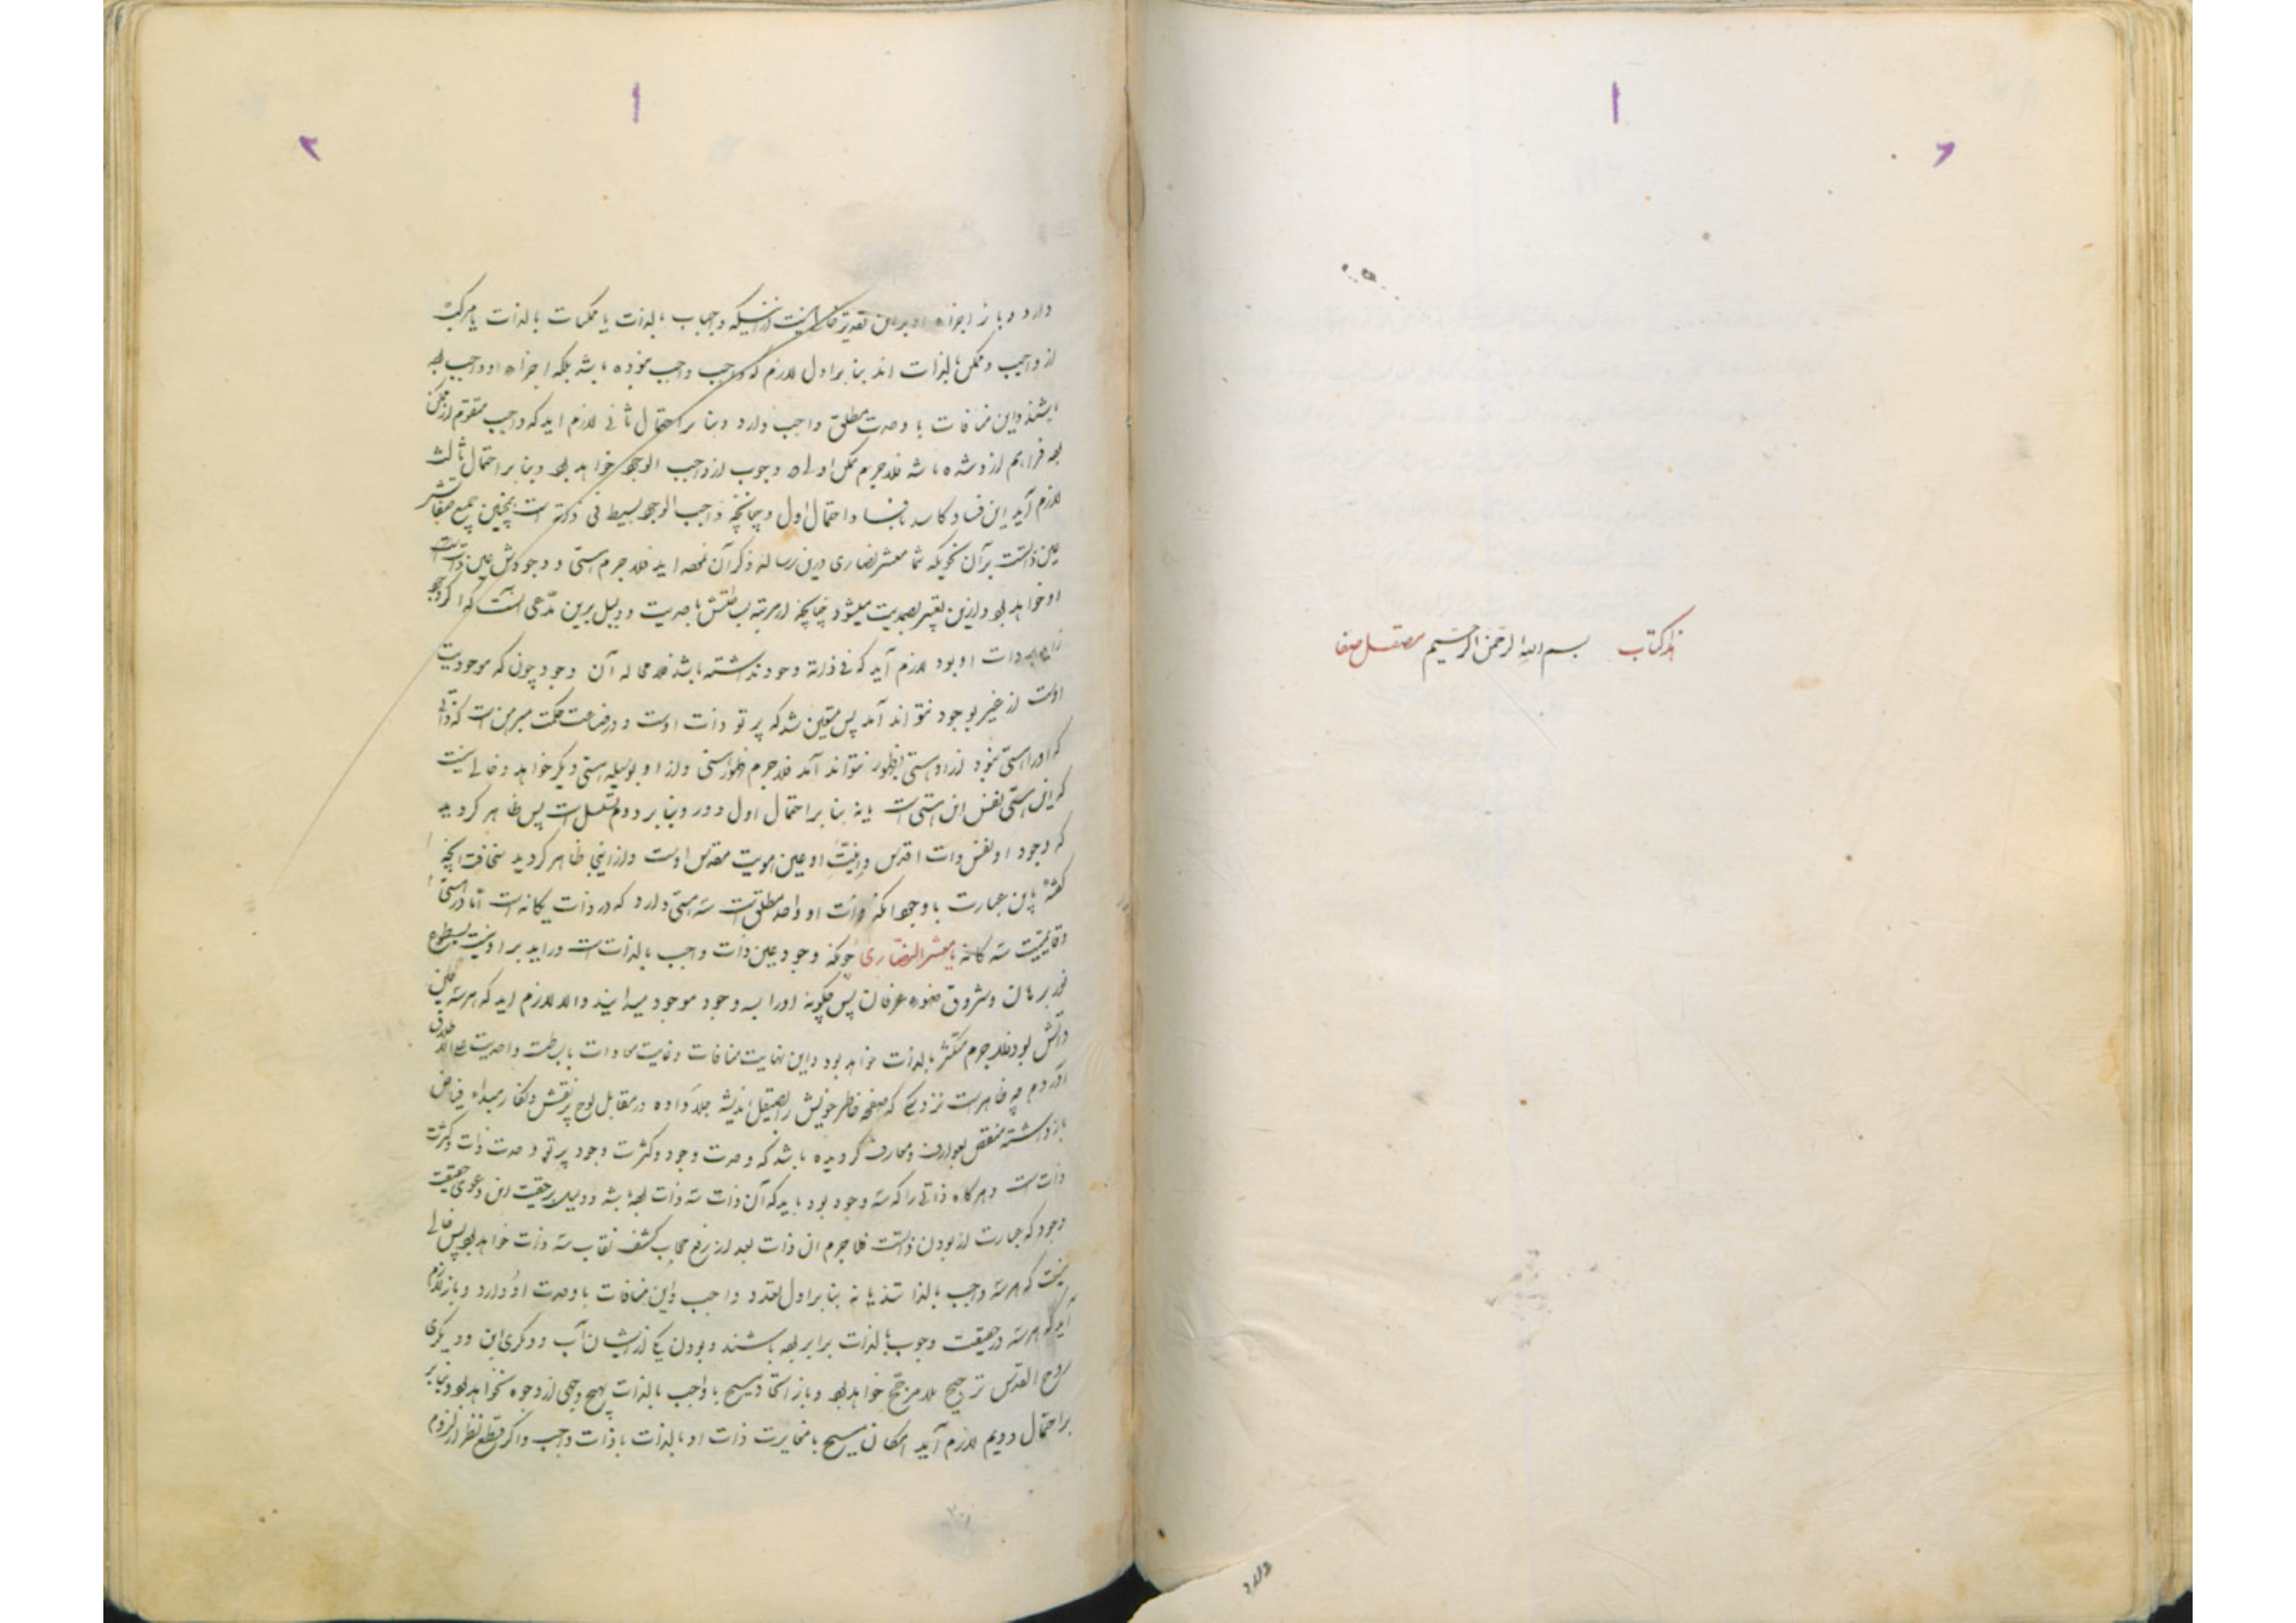 هذا کتاب بسم الله الرحمن الرحیم مصقل صفا
دارد
دارد و باز اجزاء او بر این تقدیر خالی نیست از اینکه واجباب بالذات یا ممکنات بالذات یا مرکب
از واجب و ممکن بالذات اند بنا بر اول لازم که واجب واجب نبوده باشد بلکه اجزاء او واجب بوده
باشند و این منافات با وحدت مطلق واجب دارد و بنا بر احتمال ثانی لازم اید که واجب متقوم از ممکن
فراهم از و شده باشد فلا جرم ممکن اولی به وجوب از واجب الوجود خواهد بود و بنا بر احتمال ثالث
لازم آید این فساد کاسد با فساد احتمال اول و چنانچه واجب الوجود بسیط فی ذاته است همچنین جمیع صفاتش
عین ذاتست بر آن نحویکه شما معشر نصاری درین رساله ذکر آن نموده اید فلا جرم هستی و وجودش عین ذات
او خواهد بود و ازین تعبیر بصمدیت میشود چنانچه از مرتبه بساطتش باحدیت و دلیل برین مدعی آنست که اگر وجود
زاید بر ذات او بود لازم آید که فی ذاته وجود نداشته باشد فلا محاله آن وجود چون که موجودیت
اوست از غیر بوجود نتواند آمد پس متعین شد که پرتو ذات اوست و در صناعت حکمت مبرهن است که ذاتی
که او را هستی نبود از او هستی بظهور نتواند آمد فلا جرم ظهور هستی از او بوسیله هستی دیگر خواهد و خالی نیست
که این هستی نفس ان هستی است یا نه بنا بر احتمال اول دور و بنا بر دوم تسلسل است پس ظاهر کردید
که وجود او نفس ذات اقدس و انیت او عین هویت مقدس اوست و از اینجا ظاهر کردید سخافت انچه
گفته باین عبارت با وجود انکه ذات او واحد مطلق است سه هستی دارد که در ذات یکانه است اما در هستی
و قایمیت سه کانه یا معشر النصاری چونکه وجود عین ذات واجب بالذات است و راید بر او نیست بسطوع
نور برهان و شروق ضوء عرفان پس چکونه او را بسه وجود موجود میدانند والا لازم اید که هر سه عین
ذاتش بود فلا جرم متکثر بالذات خواهد بود و این نهایت منافات و غایت معادات با بساطت و احدیت علی الاطلاق
دارد چه ظاهرست نزد کسی که صفحه خاطر خویش را بصیقل اندیشه جلا داده در مقابل لوح پر نقش و نکار مبداء فیاض
باز داشته منتقش بعوارف و معارف گردیده باشد که وحدت وجود و کثرت وجود پرتو وحدت ذات و کثرت
ذات است و هر کاه ذاتی را که سه وجود بود باید که آن ذات سه ذات بوده باشد و دلیل بر حقیت این دعوی حقیقت
وجود که عبارت از بودن ذاتست فلا جرم ان ذات بعد از رفع حجاب کشف نقاب سه ذات خواهد بود پس خالی
نیست که هر سه واجب بالذاتند یا نه بنا بر اول تعدد واجب و این منافات با وحدت او دارد و باز لازم
آید که هر سه در حقیقت وجوب بالذات برابر بوده باشند و بودن یکی از ایشان آب و دیگری ابن و دیگری
روح القدس ترجیح بلا مرجح خواهد بود و باز اتحاد مسیح با واجب بالذات بهیچ وجهی از وجوه نخواهد بود و بنا بر
بر احتمال دویم لازم آید امکان مسیح با مغایرت ذات او بالذات با ذات واجب و اگر قطع نظر از لزوم